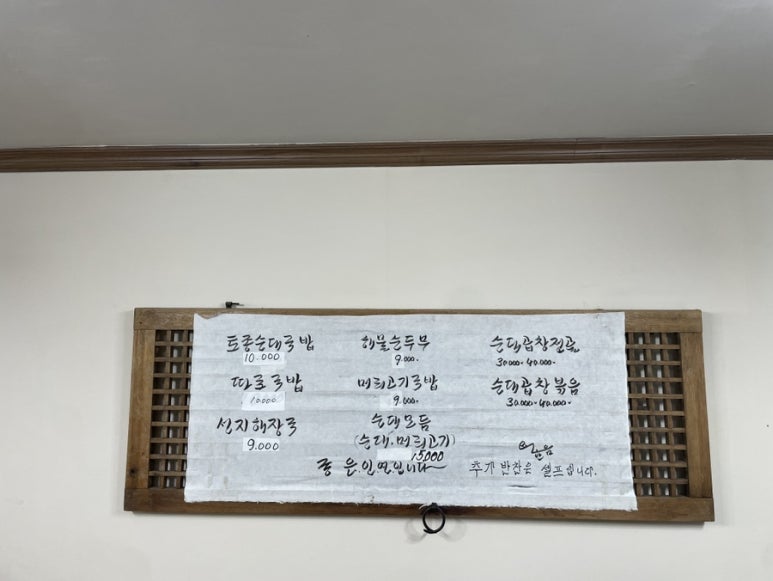 토종순대국밥
10.000
따로국밥
10.000
선지해장국
9.000
해물순두부
9.000.
머리고기국밥
9.000.
순대모듬
(순대.머리고기)
15.000
순대곱창전골
30.000-40.000-
순대곱창볶음
30.000-40.000-
좋은.인연.입니다
추가반찬은 셀프입니다.